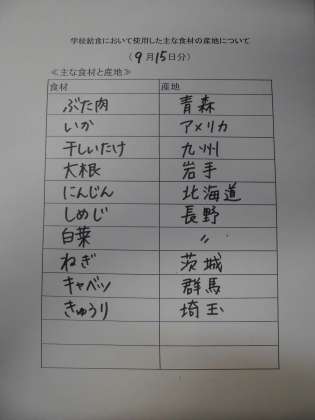 学校給食において使用した主な食材の産地について
(9月15日分)
≪主な食材と産地≫
食材 産地
ぶた肉 青森
いか アメリカ
干しいたけ 九州
大根 岩手
にんじん 北海道
しめじ 長野
白菜 〃
ねぎ 茨城
キャベツ 群馬
きゅうり 埼玉